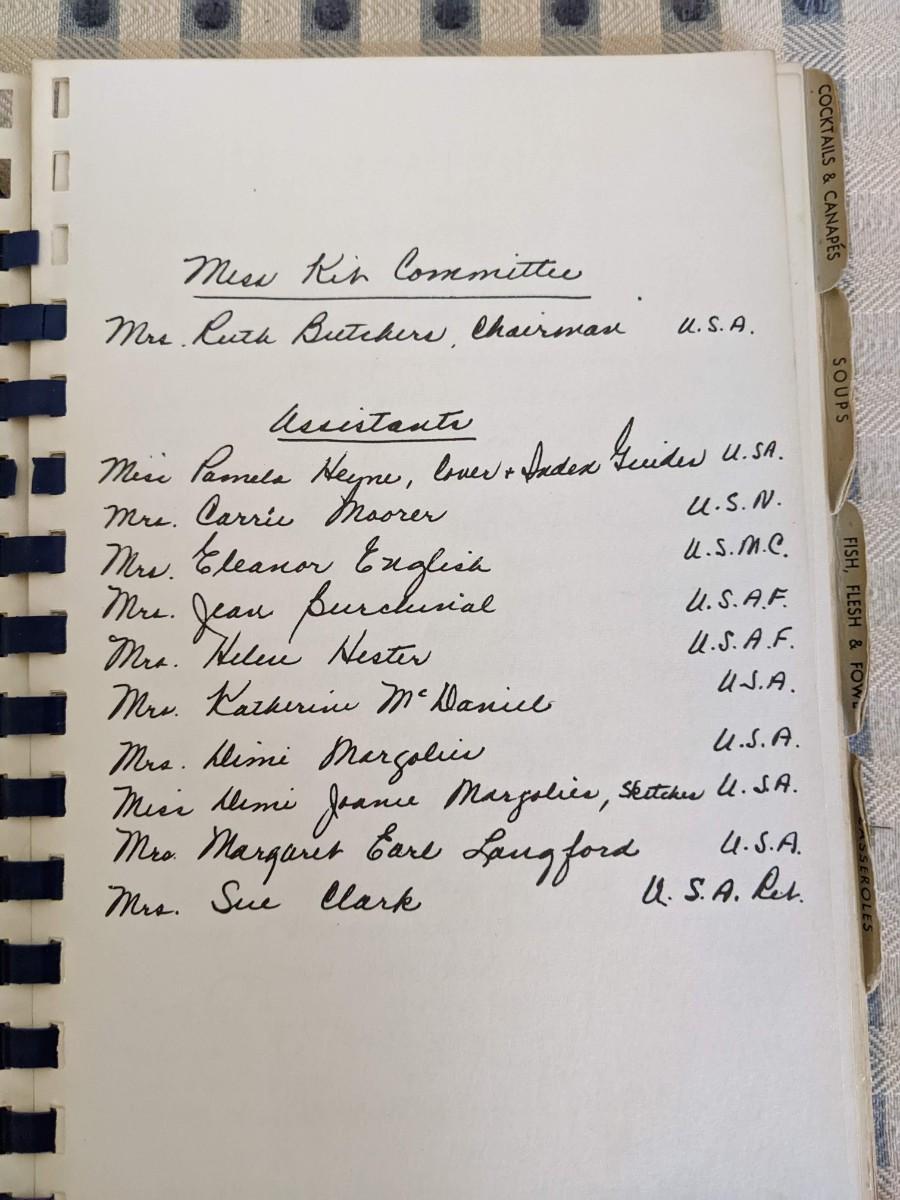 Mess Kit Committee
Mrs. Ruth Butchers, Chairman U.S.A.
Assistants
Miss Pamela Heyne, Cover + Index Guides U.S.A.
Mrs. Carrie Moorer U.S.N.
Mrs. Eleanor English U.S.M.C.
Mrs. Jean Burchinal U.S.A.F.
Mrs. Helen Hester U.S.A.F.
Mrs. Katherine McDaniel U.S.A.
Mrs. Dimi Margolies U.S.A.
Miss Dimi Joanne Margolies, Sketches U.S.A.
Mrs. Margaret Earl Langford U.S.A.
Mrs. Sue Clark U.S.A. Ret.
COCKTAILS & CANAPÉS
SOUPS
FISH, FLESH & FOWL
CASSEROLES